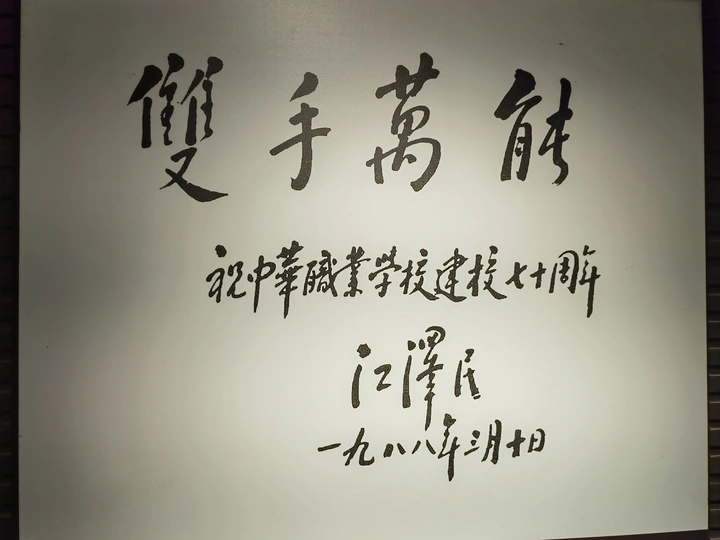 雙手萬能
祝中華職業學校建校七十周年
江澤民
一九八八年三月十日